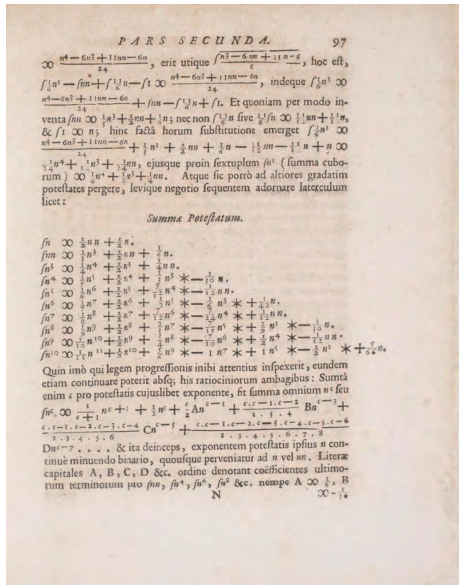 PARS SECUNDA. 97
∞ n4−6n3+11nn−6n / 24, erit utique ∫ n3−6nn+11n−6 / 6, hoc eſt,
∫⅙n3 − ∫nn + ∫11/6 n − ∫1 ∞ n4−6n3+11nn−6n / 24, indeque ∫⅙n3 ∞
n4−6n3+11nn−6n / 24 + ∫nn − ∫11/6 n + ∫1. Et quoniam per modo in-
venta ∫nn ∞ ⅓n3 + ½nn + ⅙n; nec non ∫11/6 n ſive 11/6 ∫n ∞ 11/12 nn + 11/12 n,
& ∫1 ∞ n; hinc factâ horum ſubſtitutione emerget ∫⅙n3 ∞
n4−6n3+11nn−6n / 24 + ⅓n3 + ½nn + ⅙n − 11/12 nn − 11/12 n + n ∞
1/24 n4 + 1/12 n3 + 1/24 nn, ejusque proin ſextuplum ∫n3 (ſumma cubo-
rum) ∞ ¼n4 + ½n3 + ¼nn. Atque ſic porrò ad altiores gradatim
poteſtates pergere, levique negotio ſequentem adornare laterculum
licet:
Summæ Poteſtatum.
∫n ∞ ½nn + ½n.
∫nn ∞ ⅓n3 + ½nn + ⅙n.
∫n3 ∞ ¼n4 + ½n3 + ¼nn.
∫n4 ∞ ⅕n5 + ½n4 + ⅓n3 * − 1/30 n.
∫n5 ∞ ⅙n6 + ½n5 + 5/12 n4 * − 1/12 nn.
∫n6 ∞ 1/7 n7 + ½n6 + ½n5 * − ⅙n3 * + 1/42 n.
∫n7 ∞ ⅛n8 + ½n7 + 7/12 n6 * − 7/24 n4 * + 1/12 nn.
∫n8 ∞ 1/9 n9 + ½n8 + ⅔n7 * − 7/15 n5 * + 2/9 n3 * − 1/30 n.
∫n9 ∞ 1/10 n10 + ½n9 + ¾n8 * − 7/10 n6 * + ½n4 * − 1/12 nn.
∫n10 ∞ 1/11 n11 + ½n10 + ⅚n9 * − 1 n7 * + 1 n5 * − ½n3 * + 5/66 n.
Quin imò qui legem progreſſionis inibi attentius inſpexerit, eundem
etiam continuare poterit absq; his ratiociniorum ambagibus: Sumtâ
enim c pro poteſtatis cujuslibet exponente, fit ſumma omnium nc ſeu
∫nc ∞ 1/c+1 nc+1 + ½nc + c/2 Anc−1 + c.c−1.c−2 / 2.3.4 Bnc−3 +
c.c−1.c−2.c−3.c−4 / 2.3.4.5.6 Cnc−5 + c.c−1.c−2.c−3.c−4.c−5.c−6 / 2.3.4.5.6.7.8
Dnc−7 . . . . & ita deinceps, exponentem poteſtatis ipſius n con-
tinuè minuendo binario, quouſque perveniatur ad n vel nn. Literæ
capitales A, B, C, D &c. ordine denotant coëfficientes ultimo-
rum terminorum pro ∫nn, ∫n4, ∫n6, ∫n8 &c. nempe A ∞ ⅙, B
N ∞ − 1/30